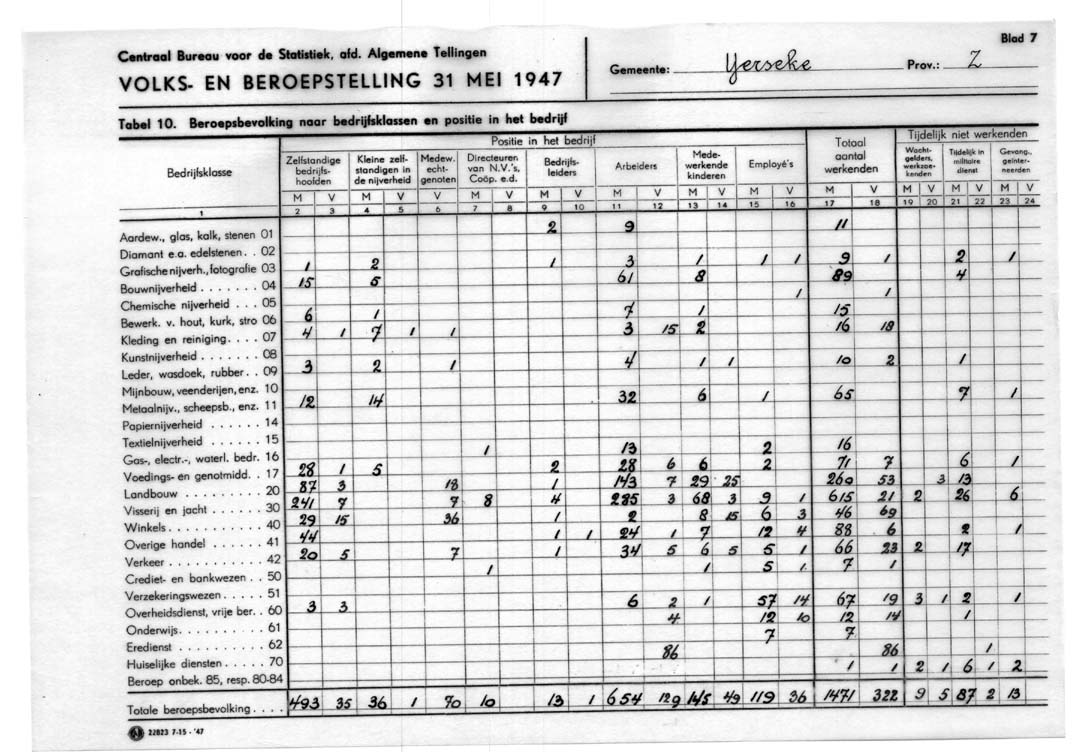 Centraal Bureau voor de Statistiek, afd. Algemene Tellingen
VOLKS- EN BEROEPSTELLING 31 MEI 1947
Gemeente: Yerseke Prov.: Z
Blad 7
Tabel 10. Beroepsbevolking naar bedrijfsklassen en positie in het bedrijf
Bedrijfsklasse
Positie in het bedrijf
Zelfstandige bedrijfs- hoofden
Kleine zelf- standigen in de nijverheid
Medew. echt- genoten
Directeuren van N.V.'s, Coöp. e.d.
Bedrijfs- leiders
Arbeiders
Mede- werkende kinderen
Employé's
Totaal aantal werkenden
Tijdelijk niet werkenden
Wacht- gelders, werkzoe- kenden
Tijdelijk in militaire dienst
Gevang., geïnter- neerden
M V M V V M V M V M V M V M V M V M V M V M V
1 2 3 4 5 6 7 8 9 10 11 12 13 14 15 16 17 18 19 20 21 22 23 24
Aardew., glas, kalk, stenen 01 2 9 11
Diamant e.a. edelstenen. . 02
Grafische nijverh., fotografie 03 1 2 1 3 1 1 1 9 1 2 1
Bouwnijverheid . . . . . . . 04 15 5 61 8 89 4
Chemische nijverheid . . . 05 1 1
Bewerk. v. hout, kurk, stro 06 6 1 7 1 15
Kleding en reiniging. . . . 07 4 1 7 1 1 3 15 2 16 18
Kunstnijverheid . . . . . . . 08
Leder, wasdoek, rubber. . 09 3 2 1 4 1 1 10 2 1
Mijnbouw, veenderijen, enz. 10
Metaalnijv., scheepsb., enz. 11 12 14 32 6 1 65 7 1
Papiernijverheid . . . . . . 14
Textielnijverheid . . . . . . 15
Gas-, electr.-, waterl. bedr. 16 1 13 2 16
Voedings- en genotmidd. . 17 28 1 5 2 28 6 6 2 71 7 6 1
Landbouw . . . . . . . . . 20 87 3 18 1 143 7 29 25 260 53 3 13
Visserij en jacht . . . . . . 30 241 7 7 8 4 285 3 68 3 9 1 615 21 2 26 6
Winkels . . . . . . . . . . . 40 29 15 36 1 2 8 15 6 3 46 69
Overige handel . . . . . . 41 44 1 1 24 1 7 12 4 88 6 2 1
Verkeer . . . . . . . . . . . 42 20 5 7 1 34 5 6 5 5 1 66 23 2 17
Crediet- en bankwezen . . 50 1 1 5 1 7 1
Verzekeringswezen. . . . . 51
Overheidsdienst, vrije ber. . 60 3 3 6 2 1 57 14 67 19 3 1 2 1
Onderwijs. . . . . . . . . . 61 4 12 10 12 14 1
Eredienst . . . . . . . . . . 62 7 7
Huiselijke diensten . . . . . 70 86 86 1
Beroep onbek. 85, resp. 80-84 1 1 2 1 6 1 2
Totale beroepsbevolking . . . . 493 35 36 1 70 10 13 1 654 129 145 49 119 36 1471 322 9 5 87 2 13
22823 7-15 - '47